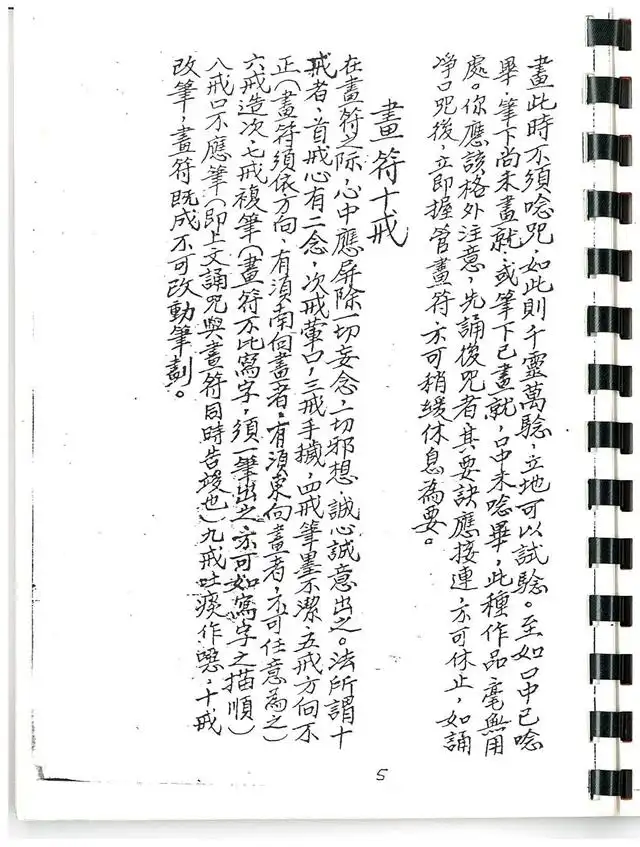 畫此時不須唸咒，如此則千靈萬驗，立地可以試驗。至如口中已唸
畢，筆下尚未畫就，或筆下已畫就，口中未唸畢，此種作品毫無用
處。你應該格外注意，先誦後咒者，其要訣應接連，不可休止，如誦
淨口咒後，立即握管畫符，不可稍緩休息為要。
畫符十戒
在畫符之際，心中應屏除一切妄念，一切邪想，誠心誠意出之。法所謂十
戒者，首戒心有二念，次戒葷口，三戒手穢，四戒筆墨不潔，五戒方向不
正（畫符須依方向，有須南向畫者，有須東向畫者，不可任意為之）
六戒造次，七戒複筆（畫符不比寫字，須一筆出之，不可如寫字之描順）
八戒口不應筆（即上文誦咒與畫符同時告竣也）九戒吐痰作噁，十戒
改筆，畫符既成不可改動筆劃。
5